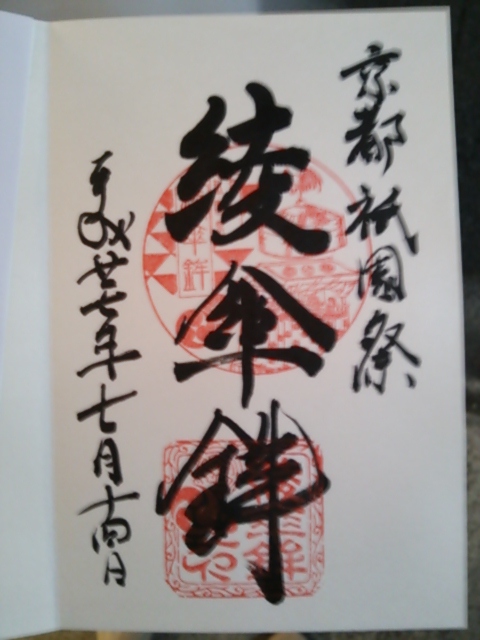 京都祇園祭
綾傘鉾
平成廿七年七月十四日
傘鉾